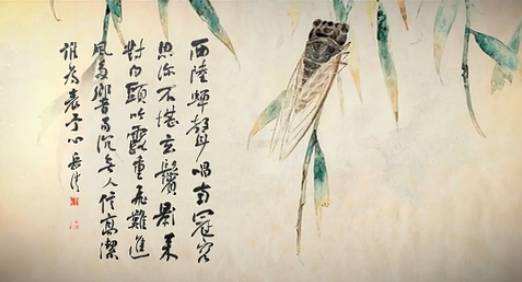 西陸蟬聲唱南冠客
思深不堪玄鬢影來
對白頭吟露重飛難進
風多響易沉無人信高潔
誰為表予心